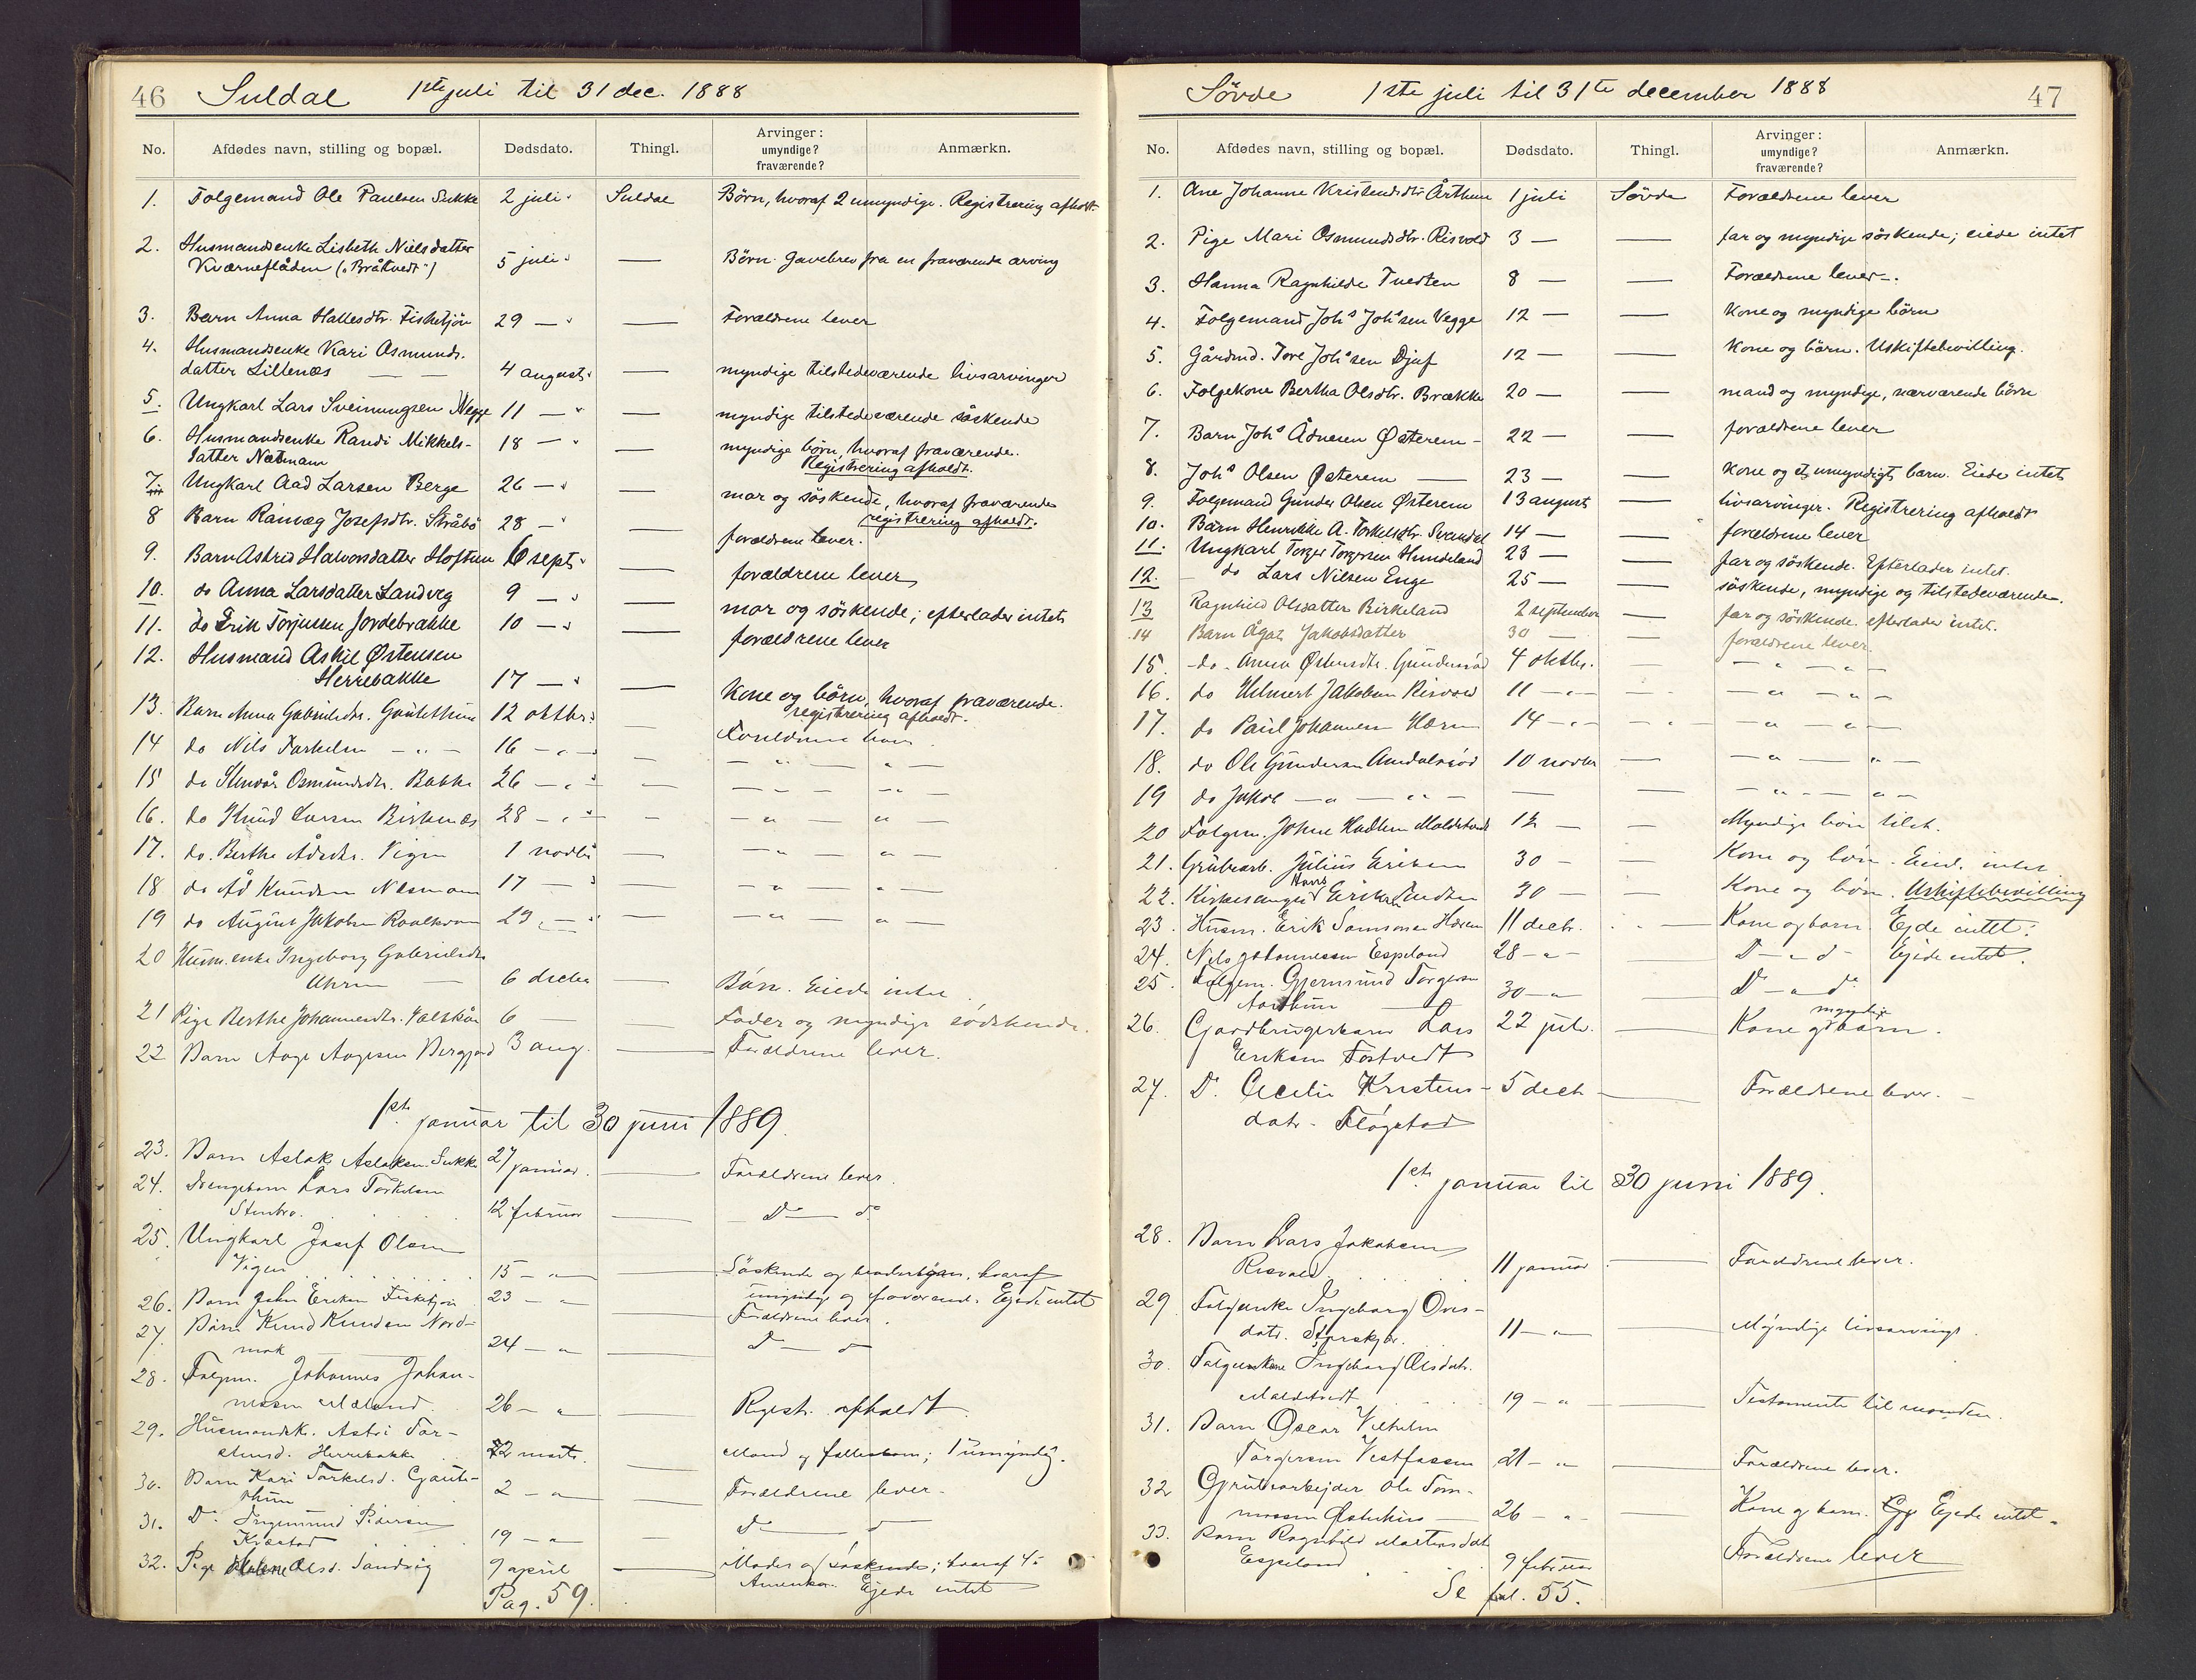 46 Suldal 1ste juli til 31 dec. 1888
No. Afdødes navn, stilling og bopæl. Dødsdato. Thingl. Arvinger: umyndige? fraværende? Anmærkn.
1. Folgemand Ole Paulsen Sukke 2 juli Suldal Børn, hvoraf 2 umyndige. Registrering afholdt.
2. Husmandsenke Lisbeth Nielsdatter
Kværneflåden ("Bråtvedt") 5 juli — Børn. Gavebrev fra en fraværende arving
3. Barn Anna Hallesdtr. Fisketjøn 29 — — Forældrene lever
4. Husmandsenke Kari Osmunds-
datter Lillenæs — — 4 august — myndige tilstedeværende livsarvinger
5. Ungkarl Lars Sveinungsen Vegge 11 — — myndige tilstedeværende søskende
6. Husmandsenke Randi Mikkels- 18 — — myndige børn, hvoraf fraværende.
datter Næsmann Registrering afholdt.
7. Ungkarl Aad Larsen Berge 26 — — mor og søskende, hvoraf fraværende
registrering afholdt.
8 Barn Ranvæg Josefsdtr. Stråbø 28 — — forældrene lever.
9. Barn Astrid Halvorsdatter Hoftun 6 sept. — forældrene lever
10. do Anna Larsdatter Landveg 9 — — mor og søskende; efterlader intet
11. do Erik Torjussen Jordebrække 10 — — forældrene lever
12. Husmand Askil Østensen
Herrebakke 17 — — Kone og børn, hvoraf fraværende.
registrering afholdt.
13. Barn Anna Gabrielsdtr. Gautethun 12 oktbr. Forældrene lever
14 do Nils Torkelsen — " — 16 — " — — — " — " —
15 do Osmundsdtr. Bakka 26 — " — — — " — " —
16. do Knud Larsen Birkenæs 28 — " — — — " — " —
17. do. Berthe Ådsdtr. Vigen 1 novbr — — " — " —
18 do Åd Knudsen Næsmann 17 — — — " — " —
19 do August Jakobsen Roaldkvam 29. — — — " — " —
20 Husm.enke Ingeborg Gabrielsdtr
6 decbr — Børn. Eiede intet.
21 Pige Berthe Johannesdtr. 6 — — Fader og myndige sødskende.
22 Barn Aage Aagesen Bergjord 3 aug. — Forældrene lever.
1ste januar til 30 juni 1889.
23. Barn Aslak Aslaksen Sukke 27 januar. — Forældrene lever.
24. Drengebarn Lars Torkelsen
Stenbro. 12 februar — Do — do
25. Ungkarl Josef Olsen
Vigen 15 — " — — Søskende og broderbørn, hvoraf
umyndige og fraværende. Ejede intet
26. Barn John Eriksen Fisketjøn 23 — " — Forældrene lever.
27. Barn Knud Knudsen Nord-
mork 24 — " — Do — do
28. Folgem. Johannes Johan-
nessen Mæland. 26 — " — Registr. afholdt.
29. Husmandsk. Astri Tor-
Herrebakke 22 marts. — Mand og fællesbarn; 1 umyndig.
30. Barn Kari Torkelsd. Gaute-
thun 2 — " — Forældrene lever.
31. Do. Ingemund Pedersen
Kvæstad 19 — " — Do — do
32. Pige Malene Olsd. Sandvig 9 april — Moder og søskende; hvoraf 4 i
Amerika. Ejede intet
Pag. 59.
Søvde 1ste juli til 31te december 1888 47
No. Afdødes navn, stilling og bopæl. Dødsdato. Thingl. Arvinger: umyndige? fraværende? Anmærkn.
1. Ane Johanne Kristensdtr Årthun 1 juli Søvde Forældrene lever
2. Pige Mari Osmundsdtr. Risvold 3 — — far og myndige søskende; eiede intet
3. Hanna Ragnhilde Tvedten 8 — — Forældrene lever.
4. Folgemand Johs Johssen Vegge 12 — — Kone og myndige børn
5. Gårdmd. Tore Johssen Djuf 12 — — Kone og børn. Uskiftebevilling.
6. Folgekone Bertha Olsdtr. Brække 20 — — mand og myndige, nærværende børn
7. Barn Johs Ådnesen Østerem — 22 — — forældrene lever
8. Johs Olsen Østerem — 23 — — Kone og et umyndigt barn. Eiede intet
9. Folgemand Gunder Olsen Østerem 13 august — livsarvinger. Registrering afholdt
10. Barn Henrikke A. Torkelsdtr. Svandal 14 — — forældrene lever
11. Ungkarl Torger Torgersen Hundeland 23 — — far og søskende. Efterlader intet.
12. — do Lars Nilsen Enge 25 — — søskende, myndige og tilstedeværende.
13 Ragnhild Olsdatter Birkeland 2 september — far og søskende. efterlader intet.
14 Barn Ågot Jakobsdatter 30 — — forældrene lever
15 do. Anna Østensdtr. Gundersød 4 oktbr. — — " — " —
16. do Helmert Jakobsen Risvold 11 — " — — — " — " —
17. do Paul Johannesen Hæren 14 — " — — — " — " —
18. do Ole Gundersen Amdalsrød 10 novbr — — " — " —
19 do Jakob — " — " — — — — " — " —
20 Folgem. Johne Maldetvedt 12 — — Myndige børn tilst.
21. Grubearb. Julius Eriksen 30 — — Kone og børn. Eied. intet
22. Kirkesanger Hans Eriksen Tvedten 30 — — Kone og børn. Uskiftebevilling
23. Husm. Erik Samsonsen Hæren 11 decbr. — Kone og barn. Ejede intet.
24. Nils Johannessen Espeland 28 — " — Do — " — do — Ejede intet.
25. Folgem. Gjermund Torgersen
Aarthun — 30 — " — Do — " — do
26. Gaardbrugerkarn Lars 22 juli. — Kone og myndige børn.
Eriksen Tostvedt
27. Do. Cecilie Kristens- 5 decb — Forældrene lever. —
datr. Fløgstad
1ste januar til 30 juni 1889.
28. Barn Lars Jakobsen
Risvold. 11 januar — Forældrene lever.
29. Folgeenke Ingeborg Ovis-
datr. 11 — " — Myndige livsarvinger.
30. Folgeenkone Ingeborg Olsdatr.
Maldetvedt 19 — " — Testamente til manden.
31. Barn Oscar Vilhelm
Torgersen Vestfossen 21 — " — Forældrene lever.
32 Grubearbejder Ole Tom-
massen Østhus — 26 — " — Kone og barn. Ejede intet.
33. Barn Ragnhild Martinsdatr
Espeland 9 februar Forældrene lever
Se fol. 55.